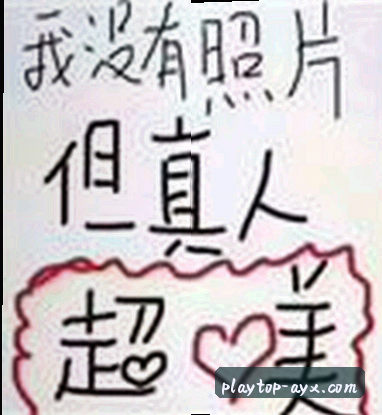 我没有照片
但真人
超美
playtop-ayx.com